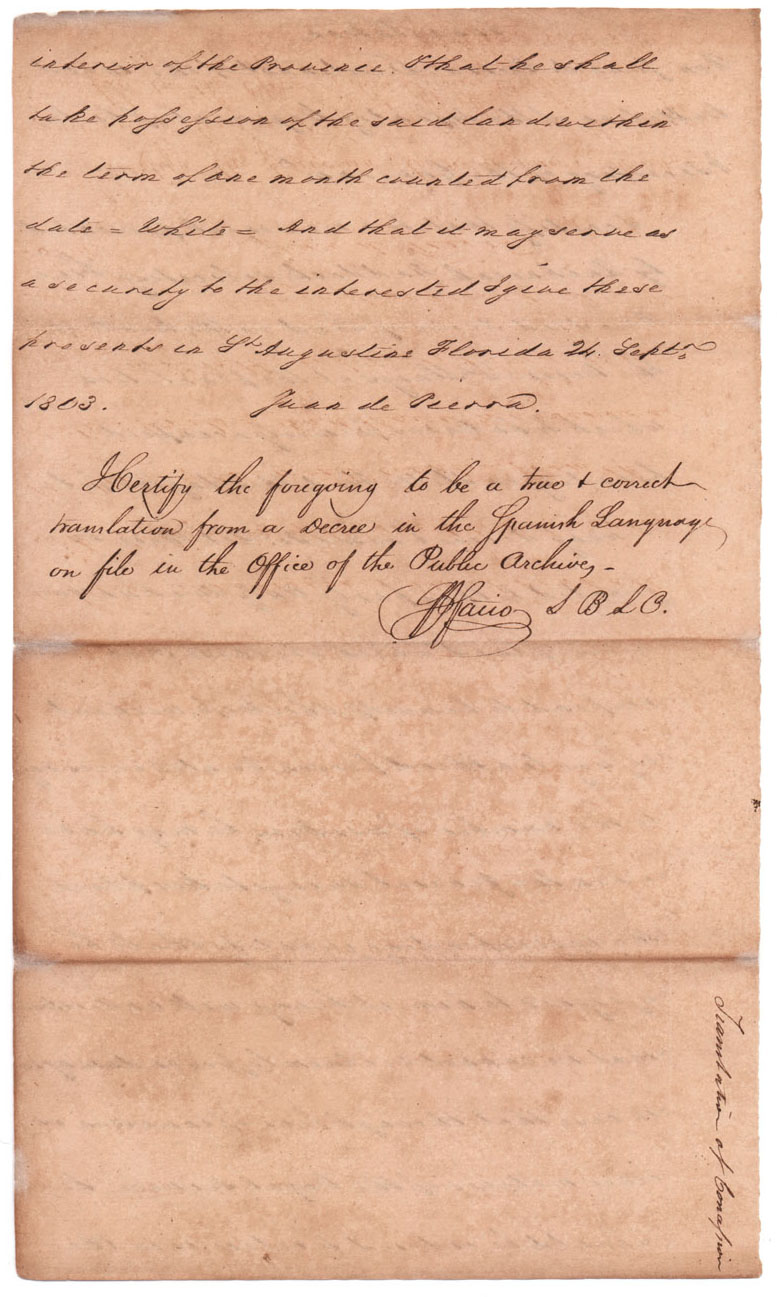 interior of the Province. & that he shall
take possession of the said land within
the term of one month counted from the
date = White = And that it may serve as
a security to the interested I give these
presents in St. Augustine Florida 24. Septr.
1803. Juan de Pierra.
I Certify the foregoing to be a true & correct
translation from a decree in the Spanish Language
on file in the Office of the Public Archives -
S B L C.
Translation of Concession